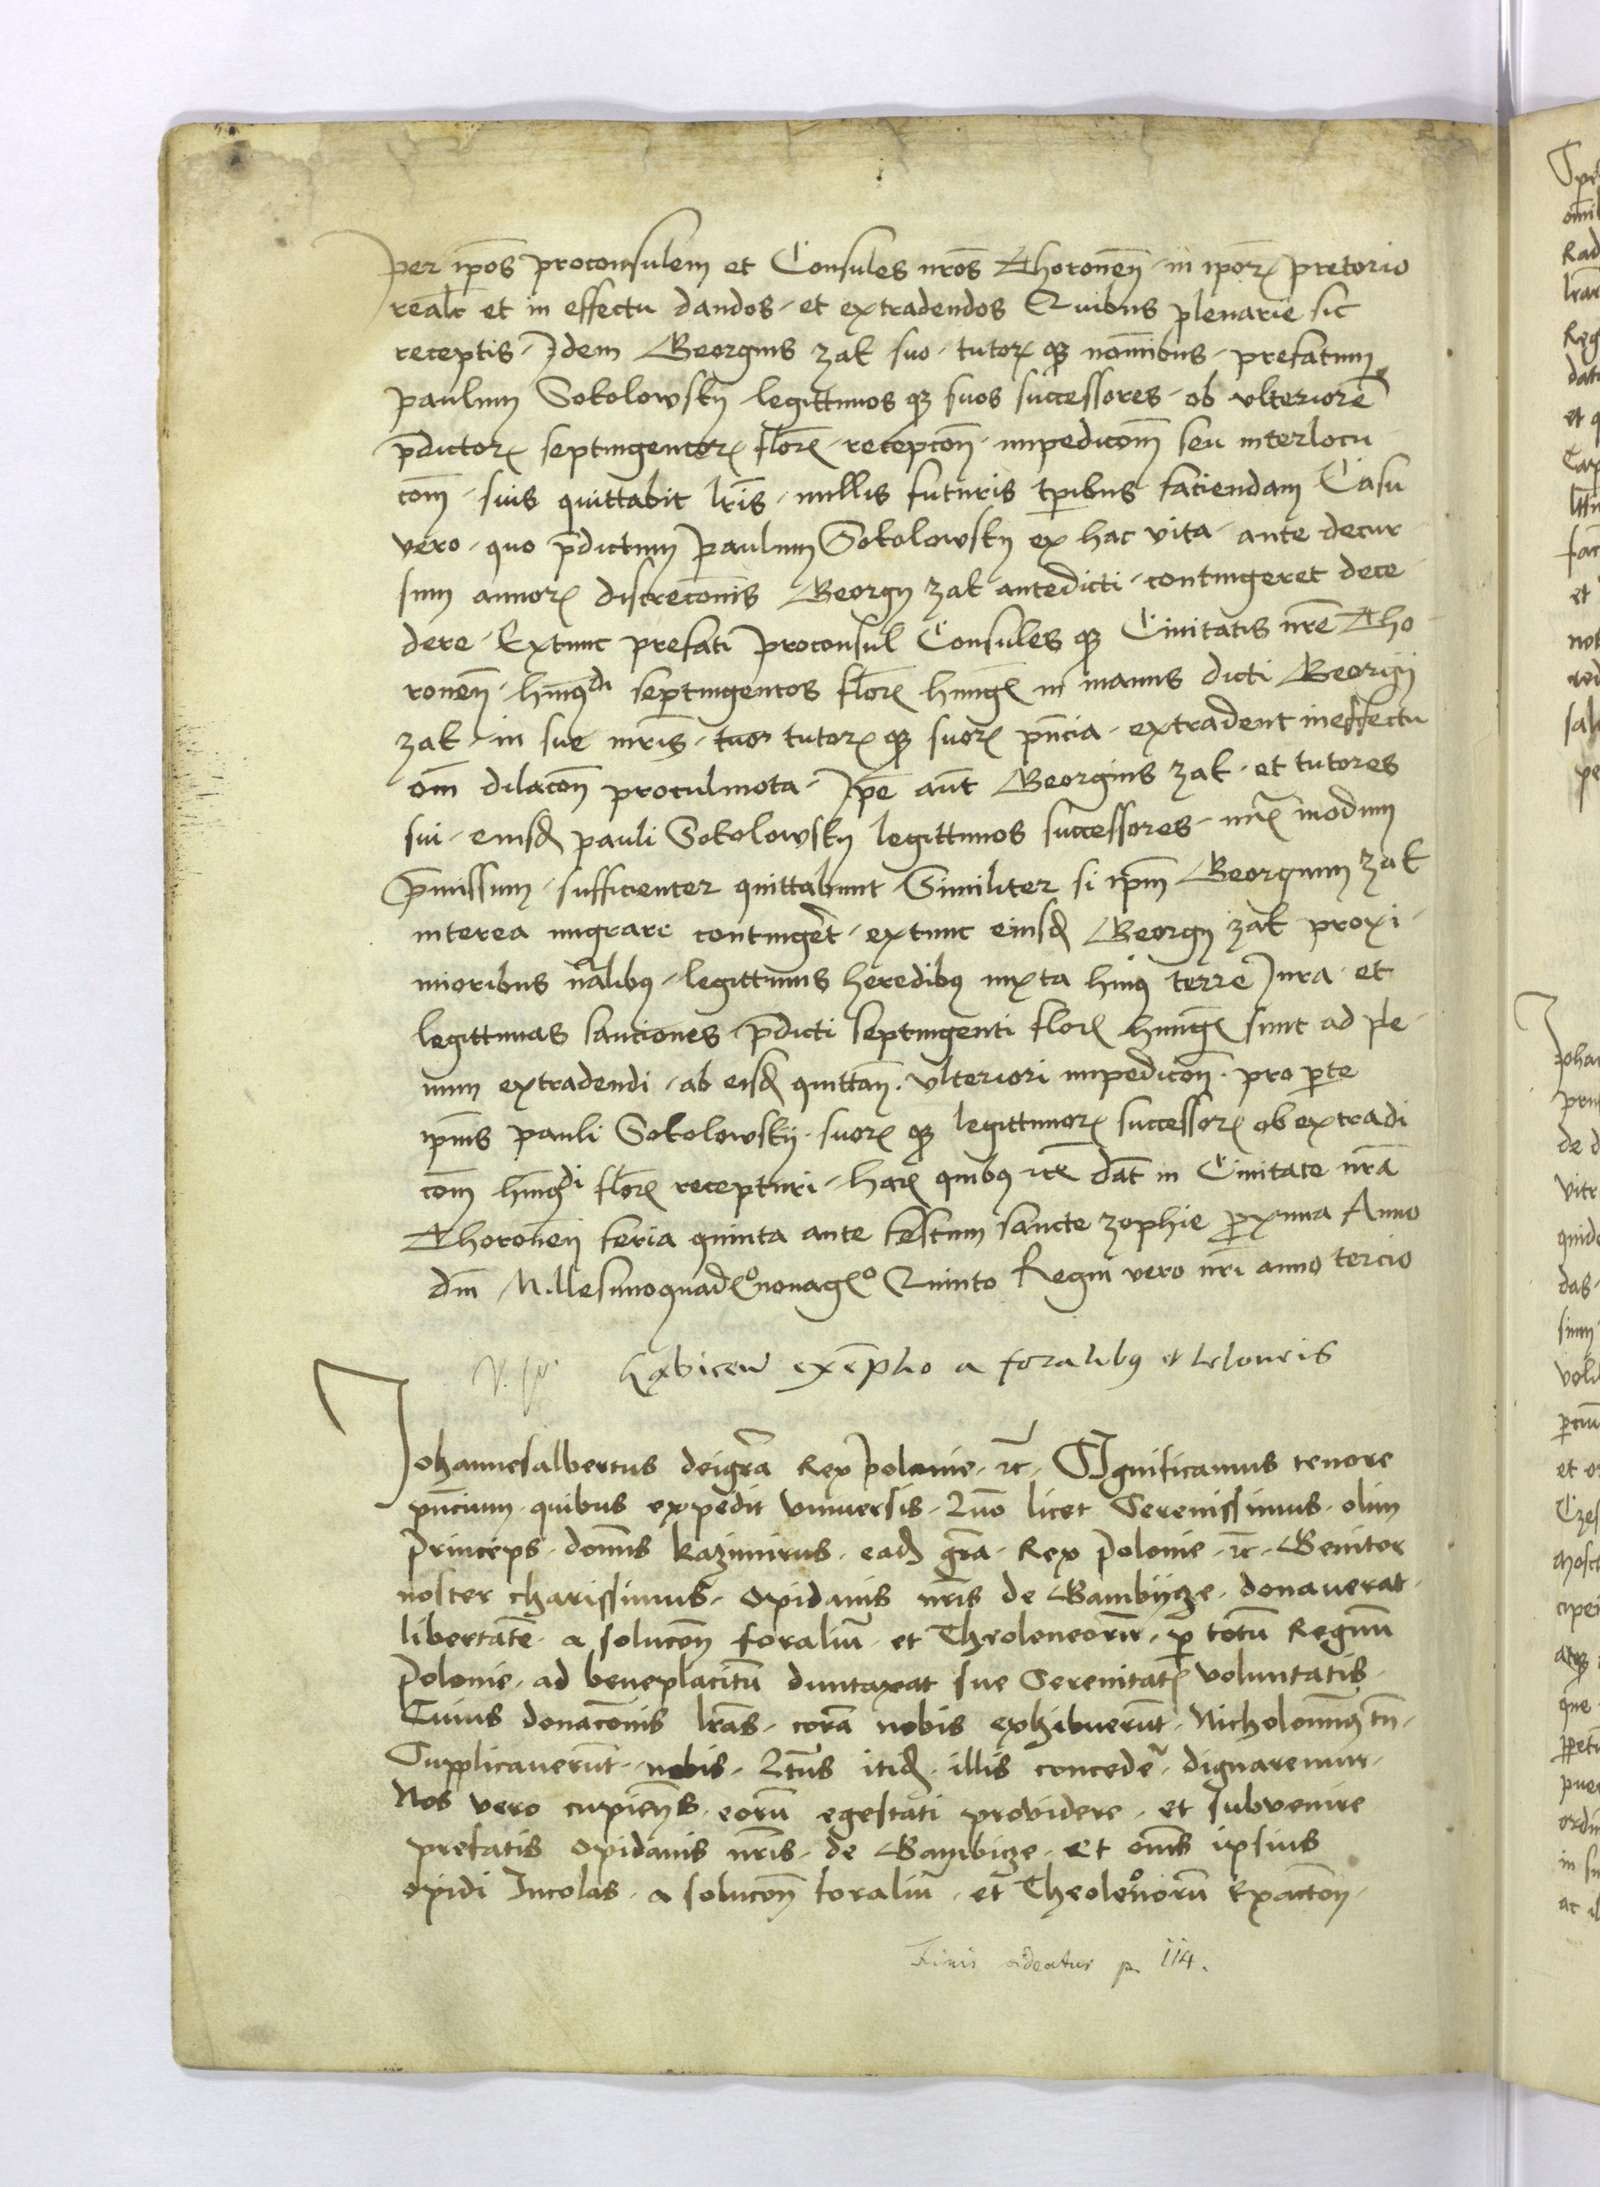 per ip̄os proconsulem et Consules nr̄os Thoronen̄ in ipōrꝫ pretorio
realr̄ et in effectu dandos et extradendos Quibus plenarie sic
receptis Idem Georgius Zak suo tutorꝫ qꝫ nominibus prefatum
Paulum Sokolowsky legittimos qꝫ suos successores ob vlteriorē
p̄dictorꝫ septingentorꝫ florꝫ recepcōn̄ impedicōm̄ seu interlocu
cōm̄ suis quittabit lr̄is nullis futuris tp̄ribus faciendam Casu
vero quo p̄dictum Paulum Sokolowsky ex hac vita ante decur
sum annorꝫ discrecōnis Georgy Zak antedicti contingeret dece
dere Extunc prefati Proconsul Consules qꝫ Ciuitatis nr̄e Tho
ronen̄ hmōi septingentos florꝫ hungꝫ in manus dicti Georgij
Zak in sue mr̄is tuor tutorꝫ qꝫ suorꝫ pn̄cia extradent ineffectu
om̄ dilacōn̄ proculmota Ip̄e aūt Georgius Zak et tutores
sui eiusdꝫ Pauli Sokolowsky legittimos successores iuxꝫ modum
p̄missum sufficienter quittabunt Similiter si ip̄m Georgium Zak
interea migrare contingēt extunc eiusdꝫ Georgy Zak proxi
mioribus nālibꝫ legittimis heredibꝫ iuxta huiꝫ terre Iura et
legittimas sanctiones p̄dicti septingenti florꝫ hungꝫ sunt ad ple
num extradendi ab eisdꝫ quittan̄ vlteriori impedicōn̄ pro parte
ip̄ius Pauli Sokolowsky suorꝫ qꝫ legittimorꝫ successorꝫ ob extradi
cōm̄ hmōi florꝫ recepturi harꝫ quibꝫ etc̄ Dat̄ in Ciuitate nr̄a
Thoronen̄ feria quinta ante festum sancte Zophie proxima Anno
dn̄i Millesimoquadrꝫº nonagꝫº Quinto Regni vero nr̄i anno tercio
exēptio a foralibꝫ et
Johannesalbertus deigr̄a Rex Polonie etc̄ Significamus tenore
pn̄cium quibus expedit vniuersis Quō licet Serenissimus olim
Princeps domn̄s Kazimirus eadꝫ gr̄a Rex Polonie etc̄ Genitor
noster charissimus Opidanis nr̄is de Gambycze donauerat
libertatē a solucōn̄ foraliū et Theoloneorum p̄ totū Regnū
Polonie ad beneplacitū duntaxat sue Serenitatꝫ voluntatis
Cuius donacōnis lr̄as corā nobis exhibuerūt Nicholominꝫ tn̄
Supplicauerūt nobis Qtūs itidꝫ illis concedē dignaremur
Nos vero cupien̄s eorū egestati providere et subvenire
prefatis Opidanis nr̄is de Gambicze et om̄s ipsius
opidi Incolas a solucōn̄ foraliū et Theolonorū Exactōn̄
Finis videatur p. 114.